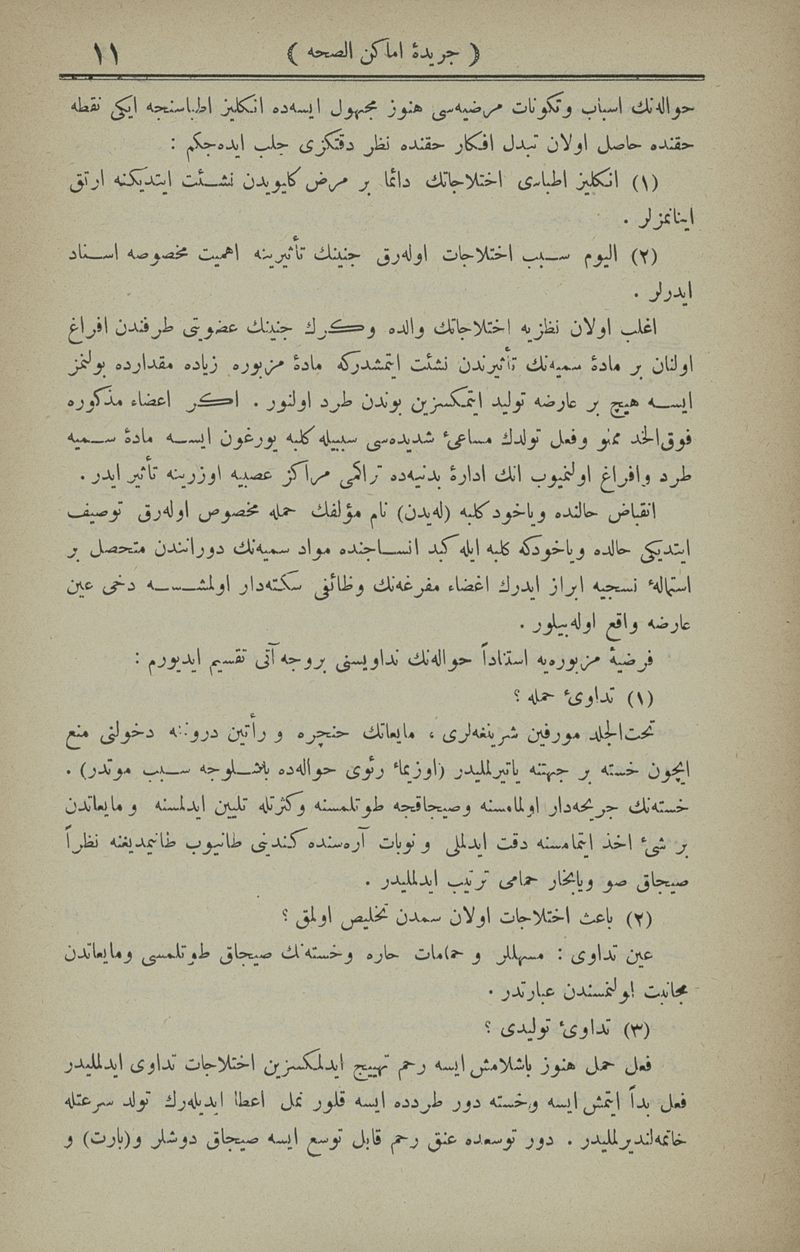 ( جريدۀ اماكن الصحه ) ١١
حواله‌نك اسباب وتكونات مرضيه‌سى هنوز مجهول ايسه‌ده انكليز اطباسنجه ايكى نقطه
حقنده حاصل اولان تبدل افكار حقنده نظر دقتكزى جلب ايده‌جكم :
(١) انكليز اطباى اختلاجاتك دائما بر مرض كليويدن نشئت ايتديكنه ارتق
اينانمزلر .
(٢) اليوم سبب اختلاجات اوله‌رق جنينك تأثيرينه اهميت مخصوصه اسناد
ايدرلر .
اغلب اولان نظريه اختلاجاتك والده وكرك جنينك عضويتى طرفندن افراغ
اولنان بر مادۀ سميه‌نك تأثيرندن نشئت ايتمشدركه مادۀ مزبوره زياده مقدارده بولنمز
ايسه هيچ بر عارضه توليد ايتمكسزين بوندن طرد اولنور . اكر اعضاء مذكوره
فوق‌الحد ممنو وفعل تولدك مساعىٔ شديده‌سى سبيله كلبه يورغون ايسه مادۀ سميه
طرد وافراغ اولنميوب انك ادارۀ بدنيه‌ده تراكمى مراكز عصبيه اوزرينه تأثير ايدر .
انقباض حالنده وياخود كلبه (له‌يدن) نام مؤلفك حمله مخصوص اوله‌رق توصيف
ايتديكى حالده وياخودكه كلبه ايله كبد انساجنده مواد سميه‌نك دورانندن متحصل بر
استحالهٔ نسجيه ابراز ايدرك اعضاء مفرغه‌نك وظائفى سكته‌دار اولمشسه دخى عين
عارضه واقع اوله‌بيلور .
فرضيۀ مزبوره‌يه استناداً حواله‌نك تداويسنى بروجه آتى تقسيم ايديورم :
(١) تداوىٔ حمله ؟
تحت‌الجلد مورفين شرينغه‌لرى ، مايعاتك حنجره و رأتين دروننه دخولنى منع
ايچون خسته بر جهتنه ياتيرلمليدر (اوزيمأ رئوى حواله‌ده باشلوجه سبب موتدر) .
خسته‌نك جريحه‌دار اولمامسنه وصيجاقجه طوتلمسنه وكثرتله تليين ايدلمسنه و مايعاتدن
بر شئ اخذ ايتمامسنه دقت ايدلملى و نوبات آره‌سنده كندينى طانيوب طانيمديغنه نظراً
صيجاق صو ويابخار حمامى ترتيب ايدلمليدر .
(٢) باعث اختلاجات اولان سمدن تخليص اولمق ؟
عين تداوى : مسهللر و حمامات حاره وخسته‌نك صيجاق طوتلمسى ومايعاتدن
مجانبت اولنمسندن عبارتدر .
(٣) تداوىٔ توليدى ؟
فعل حمل هنوز باشلامش ايسه رحم تهييج ايدلمكسزين اختلاجات تداوى ايدلمليدر
فعل بدأ ايتمش ايسه وخسته دور طردده ايسه قلور نمل اعطا ايديله‌رك تولد سرعتله
خاتمه‌لنديرلمليدر . دور توسعده عنق رحم قابل توسع ايسه صيجاق دوشلر و(بارت) و